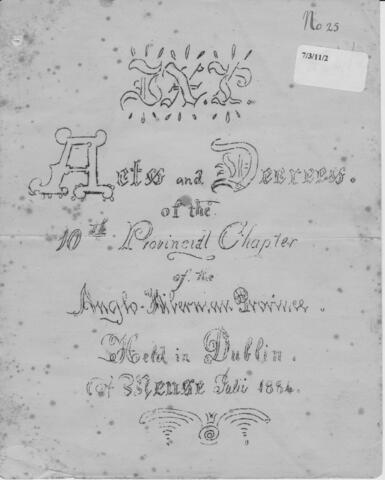 No 25
7/3/11/2
J.X.P.
Acts and Decrees.
of the
10th Provincial Chapter
of the
Anglo-Hibernian Province.
Held in Dublin.
Mense Julii 1884.